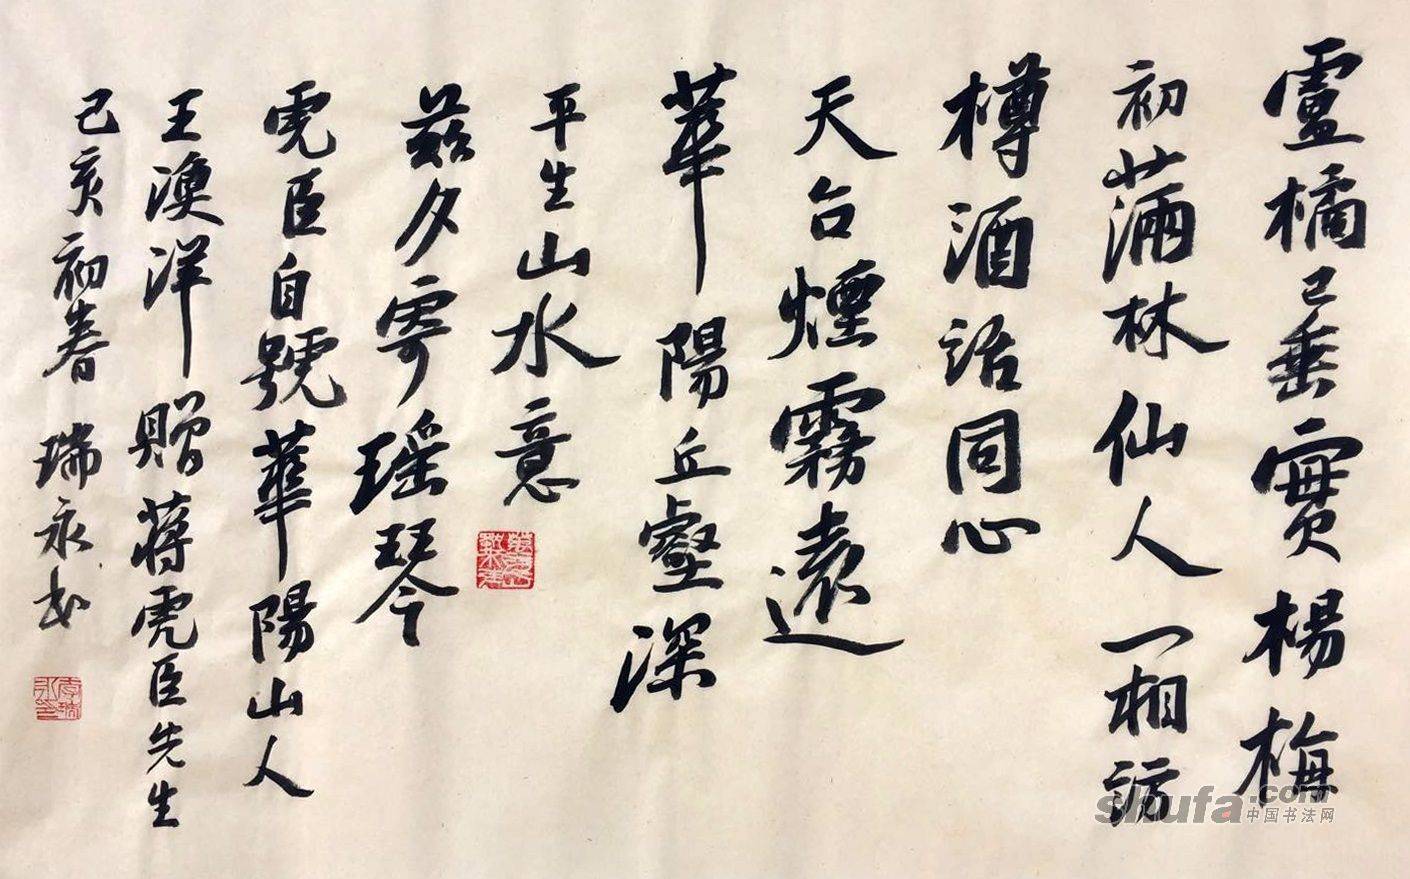 盧橘已垂實楊梅
初滿林仙人一相訪
樽酒話同心
天台煙霧遠
華陽丘壑深
平生山水意
茲夕寄瑶琴
虎臣自號華陽山人
王渙洋贈蔣虎臣先生
己亥初春 瑞永书
shufa.com
中国书法网